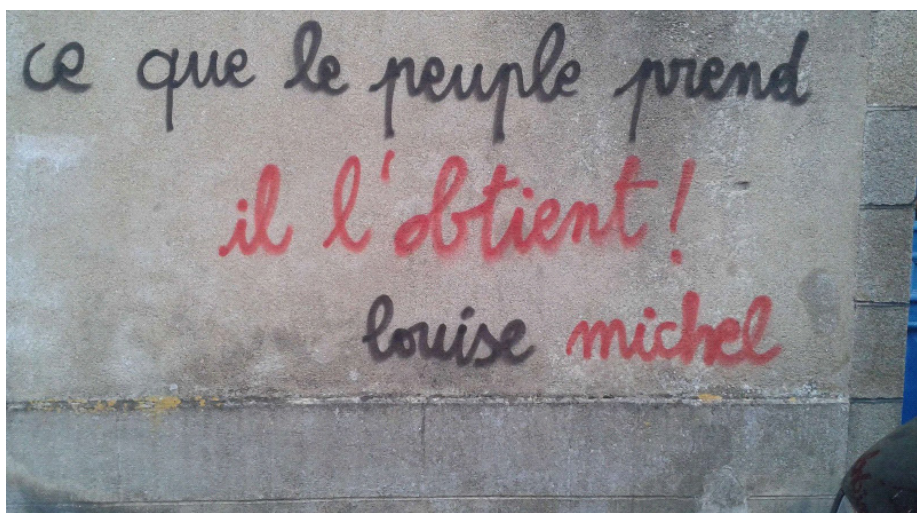 ce que le peuple prend
il l'obtient!
louise michel